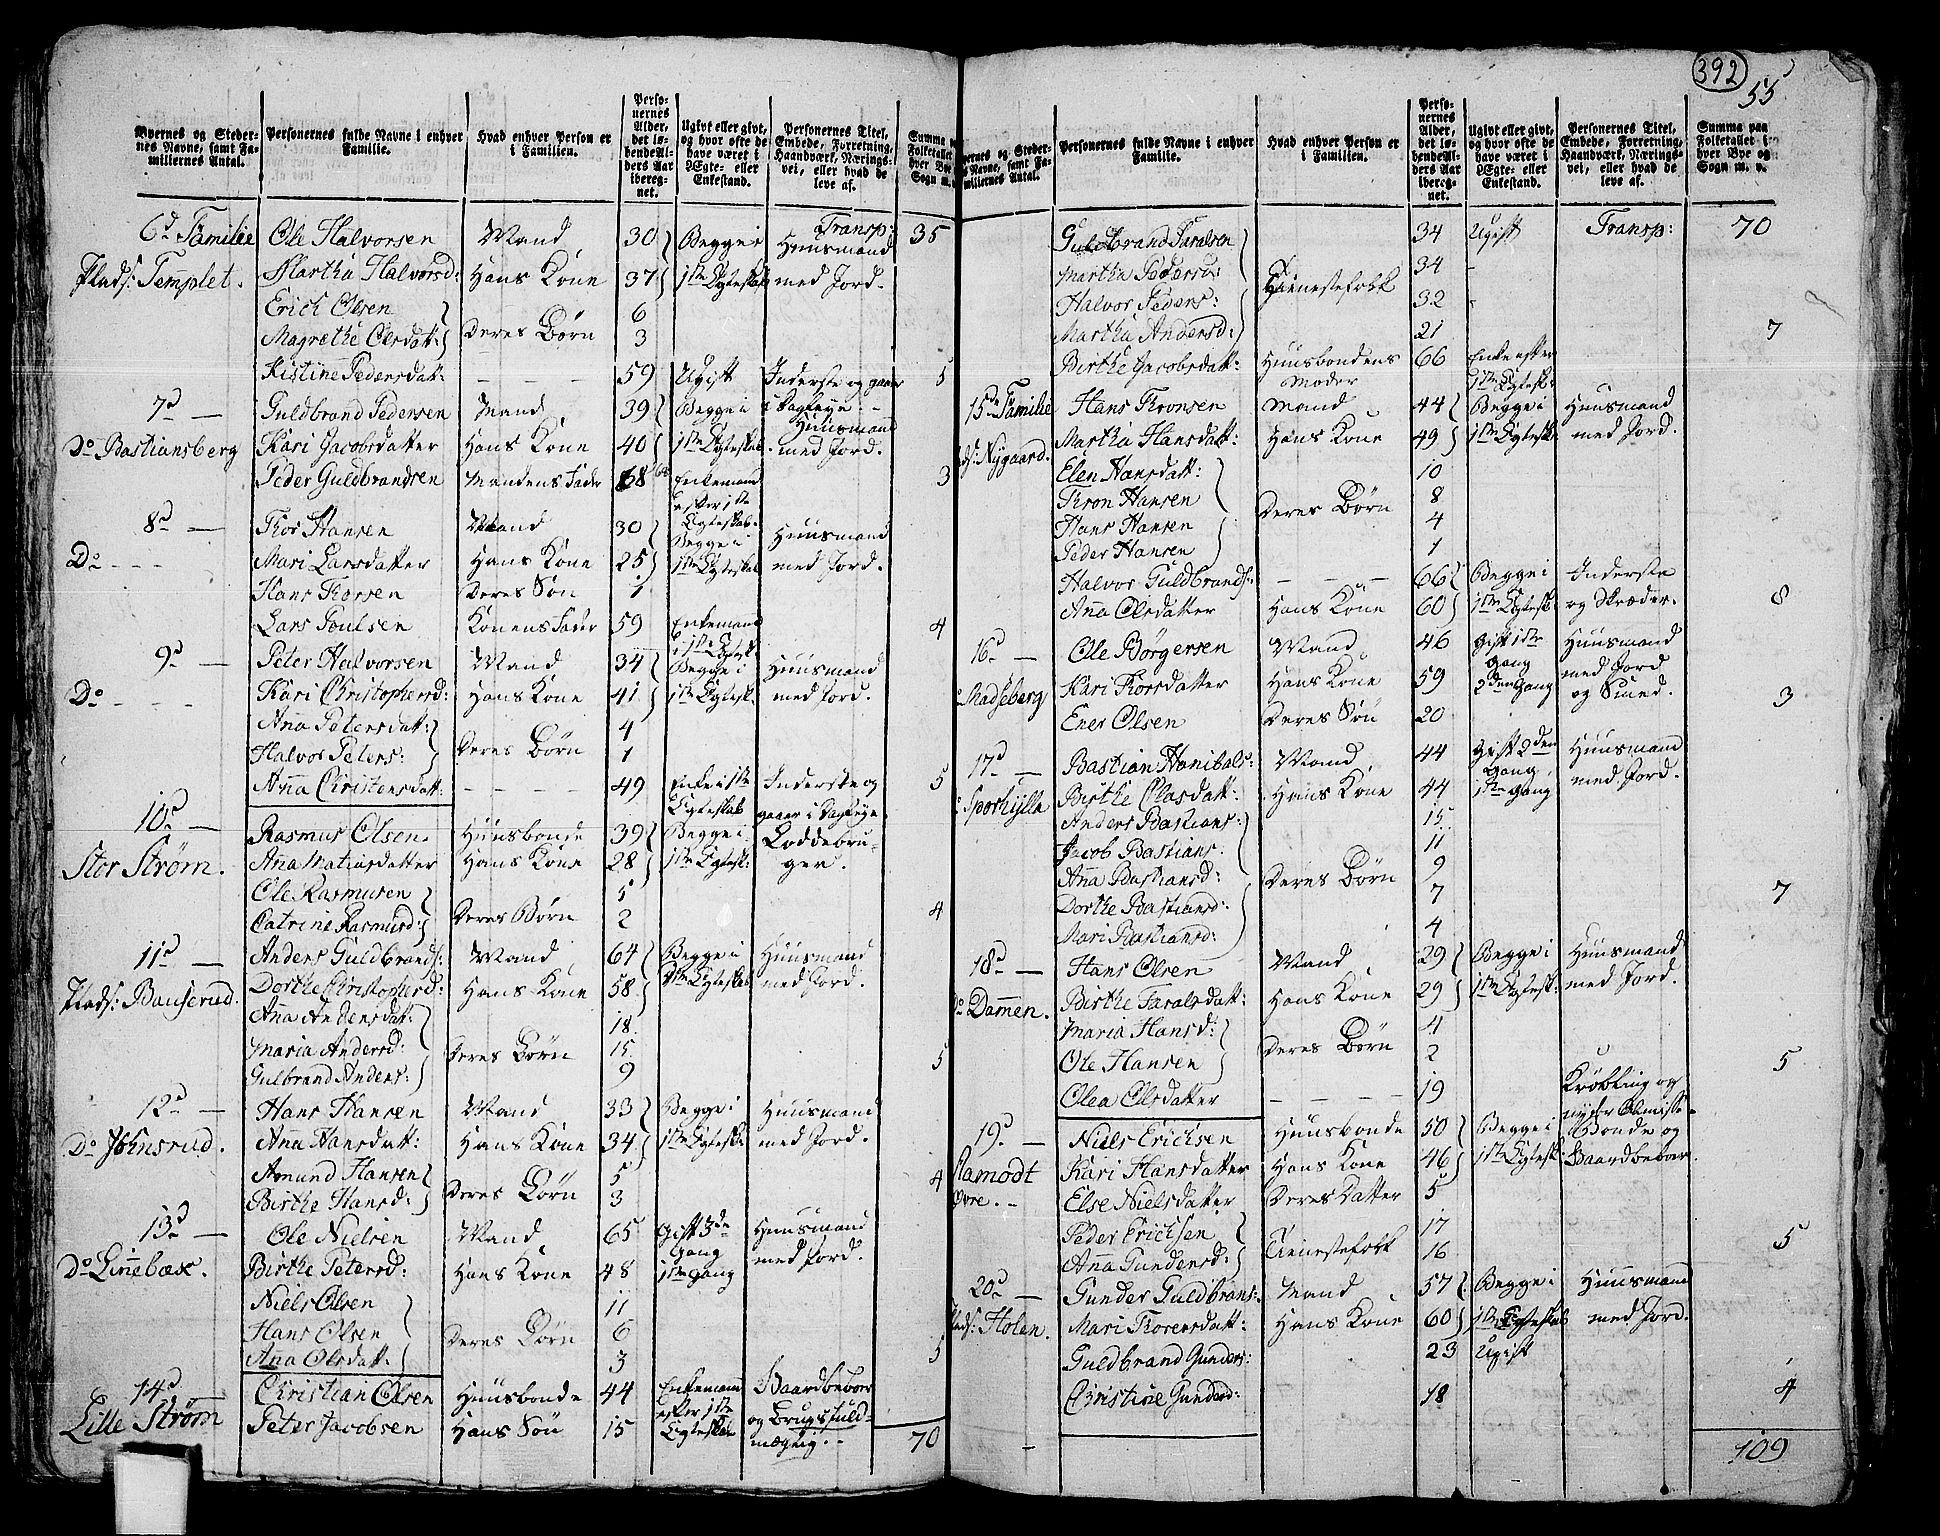 392
55
Byernes og Steder-
nes Navne, samt Fa-
miliernes Antal.
Personernes fulde Navne i enhver
Familie.
Hvad enhver Person er
i Familien.
Perso-
nernes
Alder,
det lø-
bende Al-
ders Aar
ibereg-
net.
Ugivt eller givt,
og hvor ofte de
have været i
Ægte- eller
Enkestand.
Personernes Titel,
Embede, Forretning,
Haandværk, Nærings-
vei, eller hvad de
leve af.
Summa
Folketallet
hver Bye
Sogn m.
Transp: 35
6d Familie Ole Halvorsen Mand 30 Begge i Huusmand
Plads: Templet. Martha Halvorsd: Hans Kone 37 1ste Egteskab med Jord.
Erich Olsen 6
Magrethe Olsdatt: Deres Børn 3
Kistine Pedersdatt: — — — 59 Ugift Inderste og gaaer 5
7d — Guldbrand Pedersen Mand 39 Begge i i Dagleye.
Do Bastiansberg Kari Jacobsdatter Hans Kone 40 1ste Egteskab Huusmand med Jord.
Peder Guldbrandsen Mandens Fader 68 Enkemand 3
efter 1ste Egteskab.
8d — Tor Hansen Mand 30 Begge i Huusmand
Do - - - Mari Larsdatter Hans Kone 25 1ste Egteskab med Jord.
Hans Torsen Deres Søn 1
Lars Poulsen Konens Fader 59 Enkemand 4
i 1ste Egtesk:
9d — Peter Halvorsen Mand 34 Begge i Huusmand
Do - - - Kari Christophersd: Hans Kone 41 1ste Egtesk: med Jord.
Ana Petersdatt: 4
Halvor Peters: Deres Børn 1
Anna Christensdatt: — — — 49 Enke i 1ste Egteskab Inderste og gaaer i Dagleye 5
10d — Rasmus Olsen. Huusbonde 39 Begge i Loddebru-
Stor Strøm. Ana Matiasdatter Hans Kone 28 1ste Egtesk: ger.
Ole Rasmusen 5
Catrine Rasmusd: Deres Børn 2 4
11d — Anders Guldbrands: Mand 64 Begge i Huusmand
Plads: Bauserud. Dorthe Christopherd: Hans Kone 58 1ste Egteskab med Jord.
Anna Andersdatt: 18
Maria Andersd: Deres Børn 15
Gulbrand Anders: 9 5
12d — Hans Hansen Mand 33 Begge i Huusmand
Do Johnsrud. Anna Hansdatt: Hans Kone 34 1ste Egtesk: med Jord.
Amund Hansen 5
Birthe Hansd: Deres Børn 3 4
13d — Ole Nielsen Mand 65 Gift 3de Gang Huusmand
Do Linebæk. Birthe Petersd: Hans Kone 48 1ste Gang med Jord.
Niels Olsen 11
Hans Olsen Deres Børn 6
Anna Olsdatt: 3 5
14d Christian Olsen Huusbonde 44 Enkemand Gaardbeboer
Lille Strøm Peter Jacobsen Hans Søn 15 efter 1ste Egteskab og Brugsfuld-
mægtig. 70
Byernes og Steder-
nes Navne, samt Fa-
miliernes Antal.
Personernes fulde Navne i enhver
Familie.
Hvad enhver Person er
i Familien.
Perso-
nernes
Alder,
det lø-
bende Al-
ders Aar
ibereg-
net.
Ugivt eller givt,
og hvor ofte de
have været i
Ægte- eller
Enkestand.
Personernes Titel,
Embede, Forretning,
Haandværk, Nærings-
vei, eller hvad de
leve af.
Summa paa
Folketallet i
hver Bye og
Sogn m. v.
Guldbrand Taralsen 34 Ugift Transp: 70
Martha Peders: 34 -
Halvor Peders: Tienestefolk 32 -
Martha Andersd: 21 7
Birthe Jacobsdatt: Huusbondens Moder 66 Enke efter 1ste Egtesk:
15de Familie Hans Tronsen Mand 44 Begge i Huusmand
Nygaard. Martha Hansdatt: Hans Kone 49 1ste Egtesk: med Jord.
Elen Hansdatt: 10
Tron Hansen Deres Børn 8
Hans Hansen 4
Peder Hansen 1
Halvor Guldbrands: — — — 66 Begge i Inderste
Anna Olsdatter Hans Kone 60 1ste Egtesk: og Skræder. 8
16d — Ole Børgersen Mand 46 Gift 1ste Gang Huusmand
Madseberg Kari Torsdatter Hans Kone 59 2den Gang med Jord og Smed. 3
Ener Olsen Deres Søn 20
17d — Bastian Hanibals: Mand 44 Gift 2den Gang Huusmand
Sporhylla Birthe Olasdatt: Hans Kone 44 1ste Gang med Jord.
Anders Bastians: 15
Jacob Bastians: 11
Anna Bastiansd: Deres Børn 9
Dorthe Bastiansd: 7 7
Mari Bastiansd: 4
18d — Hans Olsen Mand 29 Begge i Huusmand
Do Damen. Birthe Taralsdatt: Hans Kone 29 1ste Egtesk: med Jord.
Maria Hansd: 4
Ole Hansen Deres Børn 2 5
Olea Olsdatter — — — — 19 Krøbling og nyder Almisse
19d — Niels Erichsen Huusbonde 50 Begge i Bonde og
Kari Hansdatter Hans Kone 46 1ste Egtesk: Gaardbeboer
Øvre. - Else Nielsdatter Deres Datter 5
Peder Erichsen 17
Anna Gundersd: Tienestefolk 16 5
20d — Gunder Guldbrans: Mand 57 Begge i Huusmand
Holen. Mari Thorersdatt: Hans Kone 60 1ste Egteskab med Jord.
Guldbrand Gunders: 23 Ugift
Christine Gundersd: 18 4
109